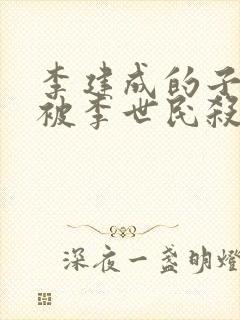 李建成的子
被李世民殺
深夜一盞明燈